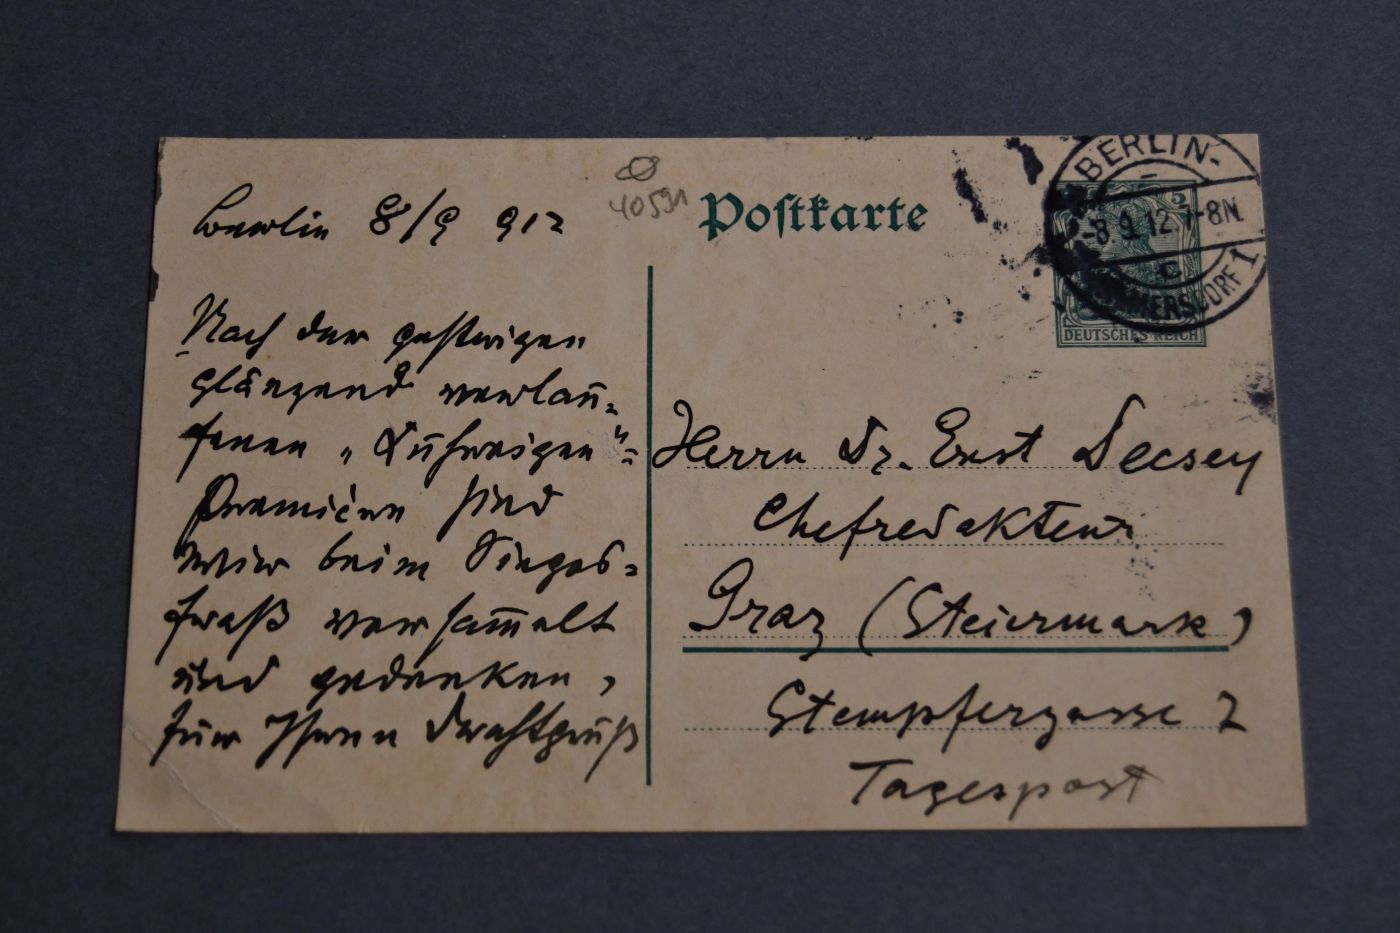 Berlin 8/9 912
40591
Postkarte
BERLIN-
5
-8.9.12.7-8N
C
WILMERSDORF 1
DEUTSCHES REICH
Nach der gestrigen
glänzend verlau=
fenen „Kuhreigen"=
Première sind
wir beim Sieges=
fraß versam̅elt
und gedenken,
für Ihren Drahtgruß
Herrn Dr. Ernst Decsey
Chefredakteur
Graz (Steiermark)
Stempfergasse 7
Tagespost